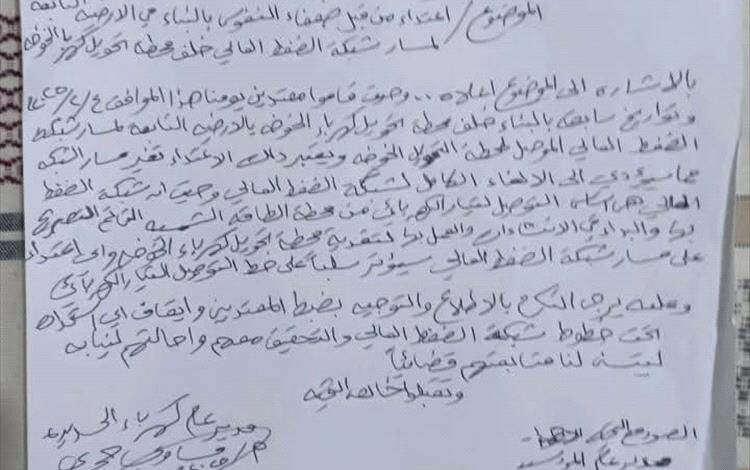 الموضوع / اعتداء من قبل ضعفاء النفوس بالبناء في الارضية التابعة
لمسار شبكة الضغط العالي خلف محطة تحويل كهرباء الخوخه
بالاشاره الى الموضوع اعلاه .. وحيث قاموا معتدين يومنا هذا الموافق
وتواريخ سابقه بالبناء خلف محطة تحويل كهرباء الخوخه بالارضية التابعه لمسار شبكة
الضغط العالي الموصل لمحطة التحويل الخوخه ويعتبر ذلك الاعتداء تغير مسار الشبكه
مما سيؤدي الى الالغاء الكامل لشبكة الضغط العالي وحيث ان شبكة الضغط
العالي هي اساس التوصيل لتيار الكهربائي من محطة الطاقه الشمسيه
بها والبداء في الانشاءات والعمل بها لتغذية محطة تحويل كهرباء الخوخه واي اعتداء
على مسار شبكة الضغط العالي سيؤثر سلباً على خط التوصيل للتيار الكهربائي
وعليه يرجى التكرم بالاطلاع والتوجيه بضبط المعتدين وايقاف اي استحداث
تحت خطوط شبكة الضغط العالي والتحقيق معهم واحالتهم لنيابه
ليتسنى لنا متابعتهم قضائياً
وتقبلوا خالص التحيه
مدير عام كهرباء الحديده